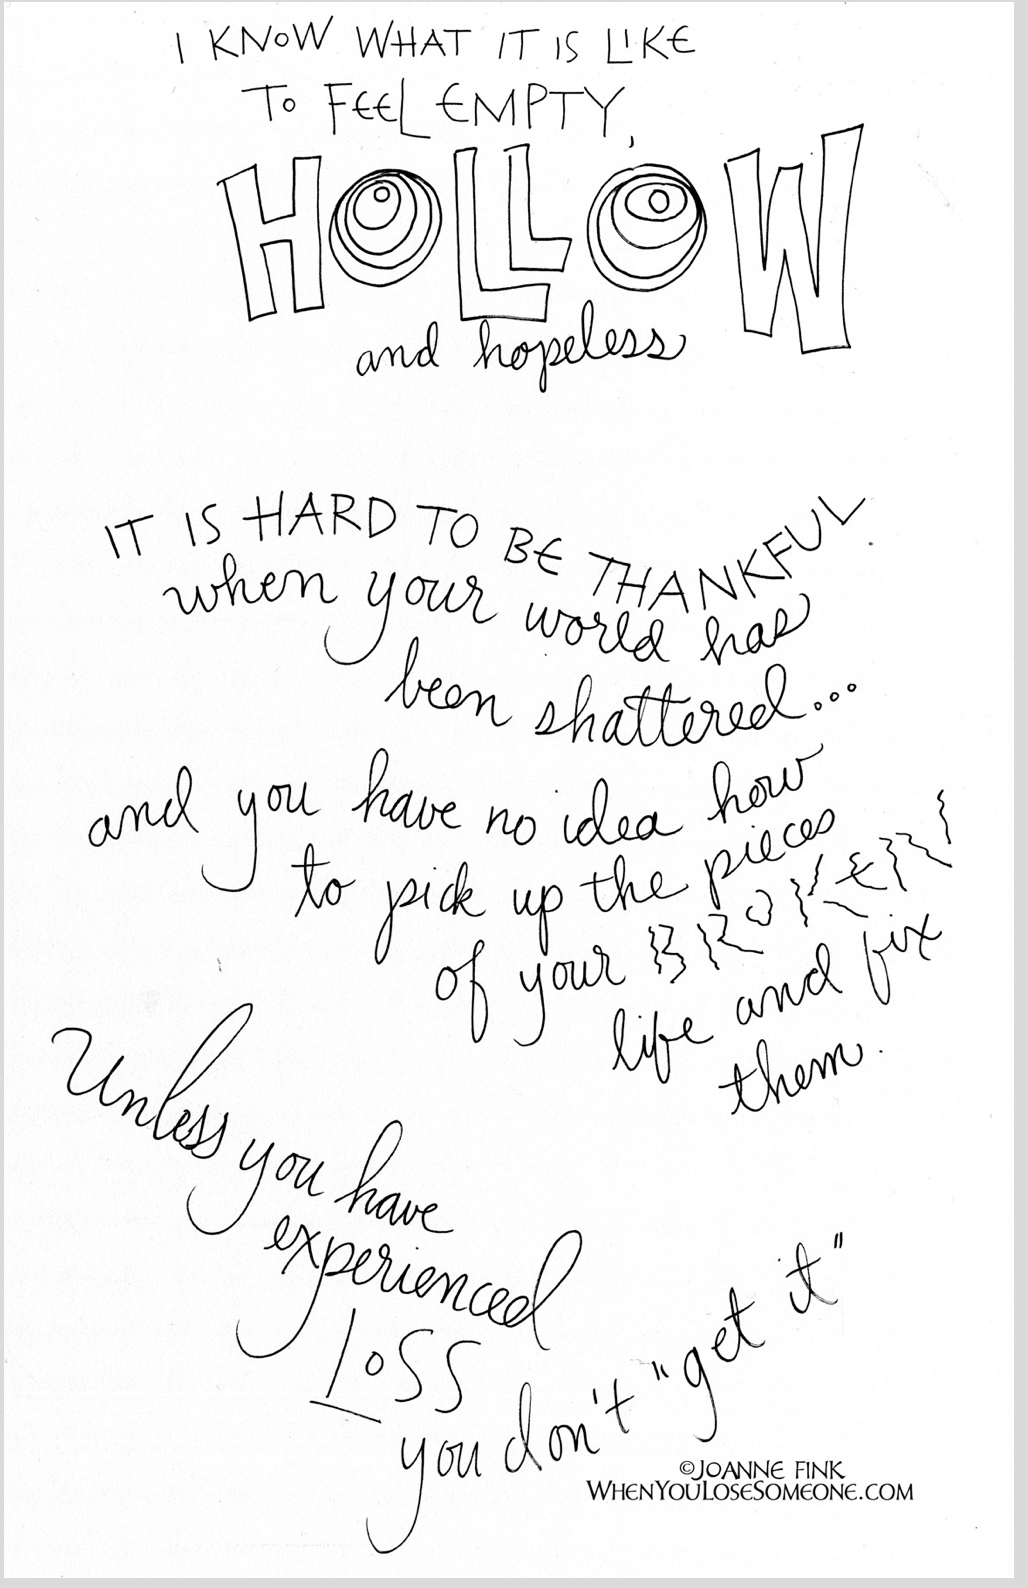 I KNOW WHAT IT IS LIKE
TO FEEL EMPTY,
HOLLOW
and hopeless
IT IS HARD TO BE THANKFUL
when your world has
been shattered...
and you have no idea how
to pick up the pieces
of your BROKEN
life and fix
them.
Unless you have
experienced
LOSS
you don't "get it"
©JOANNE FINK
WHENYOULOSESOMEONE.COM